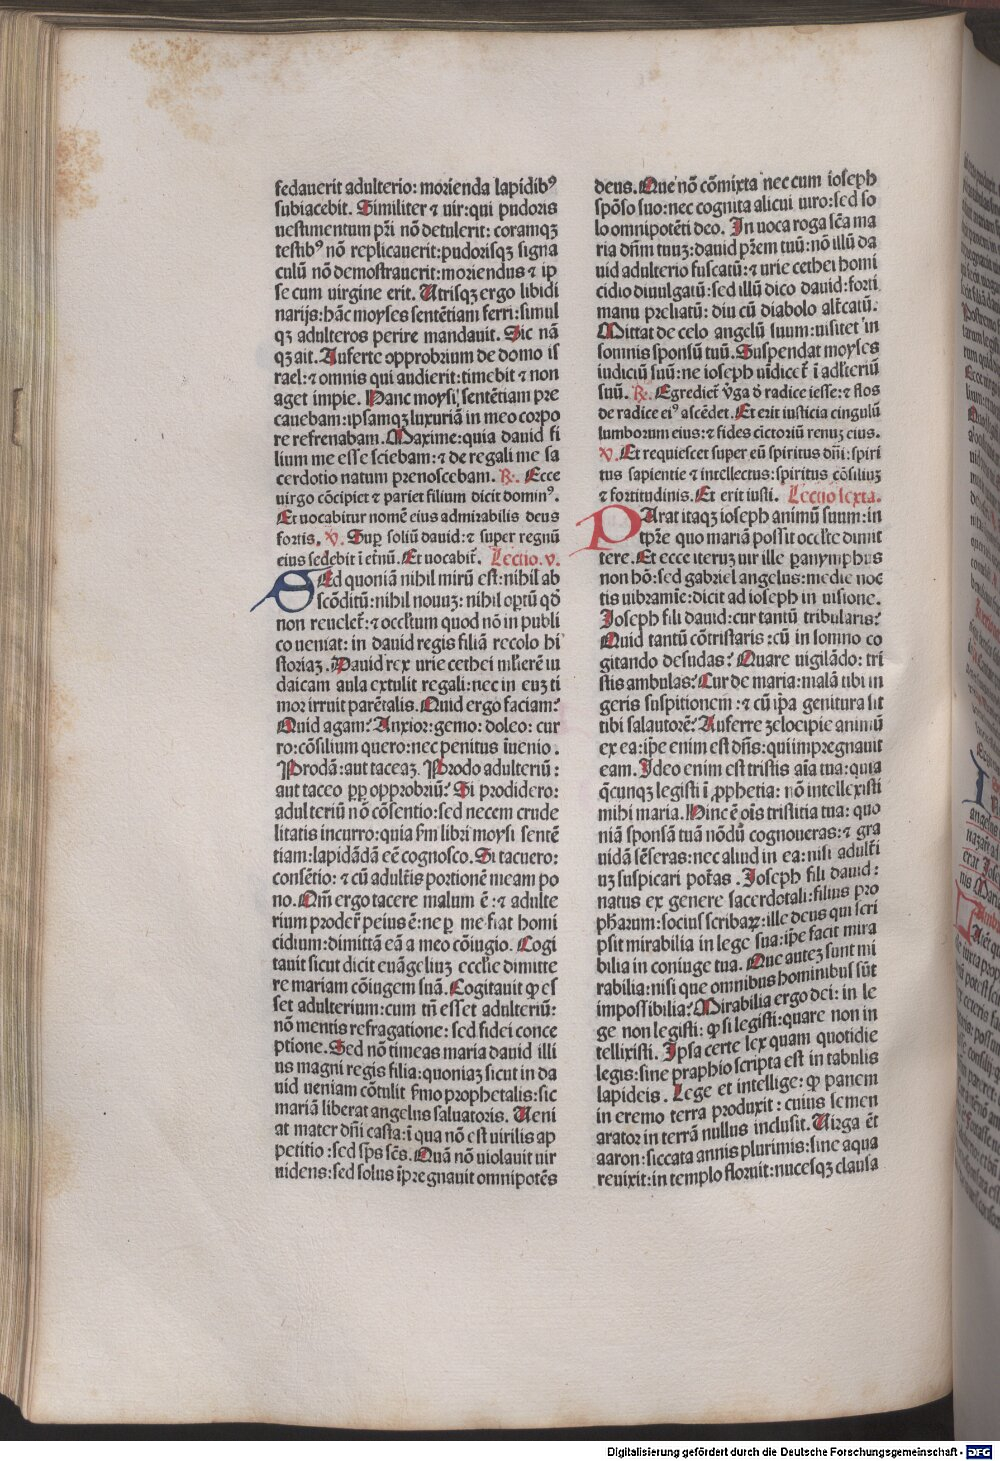 fedauerit adulterio: morienda lapidibꝰ
subiacebit. Similiter ⁊ uir: qui pudoris
uestimentum pr̄i nō detulerit: coramqꝫ
testibꝰ nō replicauerit: pudorisqꝫ signa
culū nō demostrauerit: moriendus ⁊ ip
se cum uirgine erit. Utrisqꝫ ergo libidi
narijs: hāc moyses sentētiam ferri: simul
qꝫ adulteros perire mandauit. Sic nā
qꝫ ait. Auferte opprobrium de domo is
rael: ⁊ omnis qui audierit: timebit ⁊ non
aget impie. Hanc moysi sentētiam pre
cauebam: ipsamqꝫ luxuriā in meo corpo
re refrenabam. Maxime: quia dauid fi
lium me esse sciebam: ⁊ de regali me sa
cerdotio natum prenoscebam. ℞. Ecce
uirgo cōcipiet ⁊ pariet filium dicit dominꝰ.
Et uocabitur nomē eius admirabilis deus
fortis. ℣. Suꝑ soliū dauid: ⁊ super regnū
eius sedebit ī et̄nū. Et uocabit̄. Lectio. v.
SEd quoniā nihil mirū est: nihil ab
scōditū: nihil nouuꝫ: nihil oꝑtū qđ
non reuelet̄: ⁊ occl̄tum quod nō in publi
co ueniat: in dauid regis filiā recolo hi
storiaꝫ. Dauid rex urie cethei ml̄ierē iu
daicam aula extulit regali: nec in euꝫ ti
mor irruit parētalis. Quid ergo faciam?
Quid agam? Anxior: gemo: doleo: cur
ro: cōsilium quero: nec penitus īuenio.
Prodā: aut taceaꝫ. Prodo adulteriū:
aut taceo ꝓꝑ opprobriū? Si prodidero:
adulteriū nō cōsentio: sed necem crude
litatis incurro: quia ẜm libri moysi sentē
tiam: lapidādā eē cognosco. Si tacuero:
consētio: ⁊ cū adult̄is portionē meam po
no. Qm̄ ergo tacere malum ē: ⁊ adulte
rium proder̄ peius ē: ne ꝑ me fiat homi
cidium: dimittā eā a meo cōiugio. Cogi
tauit sicut dicit euāgeliuꝫ occl̄te dimitte
re mariam cōiugem suā. Cogitauit ꝙ es
set adulterium: cum tn̄ esset adulteriū:
nō mentis refragatione: sed fidei conce
ptione. Sed nō timeas maria dauid illi
us magni regis filia: quoniaꝫ sicut in da
uid ueniam cōtulit ẜmo prophetalis: sic
mariā liberat angelus saluatoris. Ueni
at mater dn̄i casta: ī qua nō est uirilis ap
petitio: sed sp̄s sc̄s. Quā nō uiolauit uir
uidens: sed solus īpregnauit omnipotēs
deus. Que nō cōmixta nec cum ioseph
spōso suo: nec cognita alicui uiro: sed so
lo omnipotēti deo. In uoca roga sc̄a ma
ria dn̄m tuuꝫ: dauid pr̄em tuū: nō illū da
uid adulterio fuscatū: ⁊ urie cethei homi
cidio diuulgatū: sed illū dico dauid: forti
manu preliatū: diu cū diabolo alt̄catū.
Mittat de celo angelū suum: uisitet in
somnis sponsū tuū. Suspendat moyses
iudiciū suū: ne ioseph uīdicet̄ ī adl̄teriū
suū. ℞. Egrediet̄ v̄ga đ radice iesse: ⁊ flos
de radice eiꝰ ascēdet. Et erit iusticia cingulū
lumborum eius: ⁊ fides cīctoriū renuꝫ eius.
℣. Et requiescet super eū spiritus dn̄i: spiri
tus sapientie ⁊ intellectus: spiritus cōsiliuꝫ
⁊ fortitudinis. Et erit iusti. Lectio sexta.
PArat itaqꝫ ioseph animū suum: in
tꝑr̄e quo mariā possit occl̄te dimit
tere. Et ecce iteruꝫ uir ille ꝑanymphus
non hō: sed gabriel angelus: medie noc
tis uibramīe: dicit ad ioseph in uisione.
Ioseph fili dauid: cur tantū tribularis?
Quid tantū cōtristaris: cū in somno co
gitando desudas? Quare uigilādo: tri
stis ambulas? Cur de maria: malā tibi in
geris suspitionem: ⁊ cū ip̄a genitura sit
tibi saluatorē? Auferre zelotipie animū
ex ea: ip̄e enim est dn̄s: qui impregnauit
eam. Ideo enim est tristis aīa tua: quia
q̄cunqꝫ legisti ī ꝓphetia: nō intellexisti
mihi maria. Hinc ē oīs tristitia tua: quo
niā sponsā tuā nōdū cognoueras: ⁊ gra
uidā sēseras: nec aliud in ea: nisi adult̄i
uꝫ suspicari pot̄as. Ioseph fili dauid:
natus ex genere sacerdotali: filius pro
phārum: socius scribaꝝ: ille deus qui scri
psit mirabilia in lege sua: ip̄e facit mira
bilia in coniuge tua. Que auteꝫ sunt mi
rabilia: nisi que omnibus hominibus sūt
impossibilia? Mirabilia ergo dei: in le
ge non legisti: ꝙ si legisti: quare non in
tellixisti. Ipsa certe lex quam quotidie
legis: sine praphio scripta est in tabulis
lapideis. Lege et intellige: ꝙ panem
in eremo terra produxit: cuius semen
arator in terrā nullus inclusit. Uirga ēt
aaron: siccata annis plurimis: sine aqua
reuixit: in templo floruit: nucesqꝫ clausa
Digitalisierung gefördert durch die Deutsche Forschungsgemeinschaft - DFG